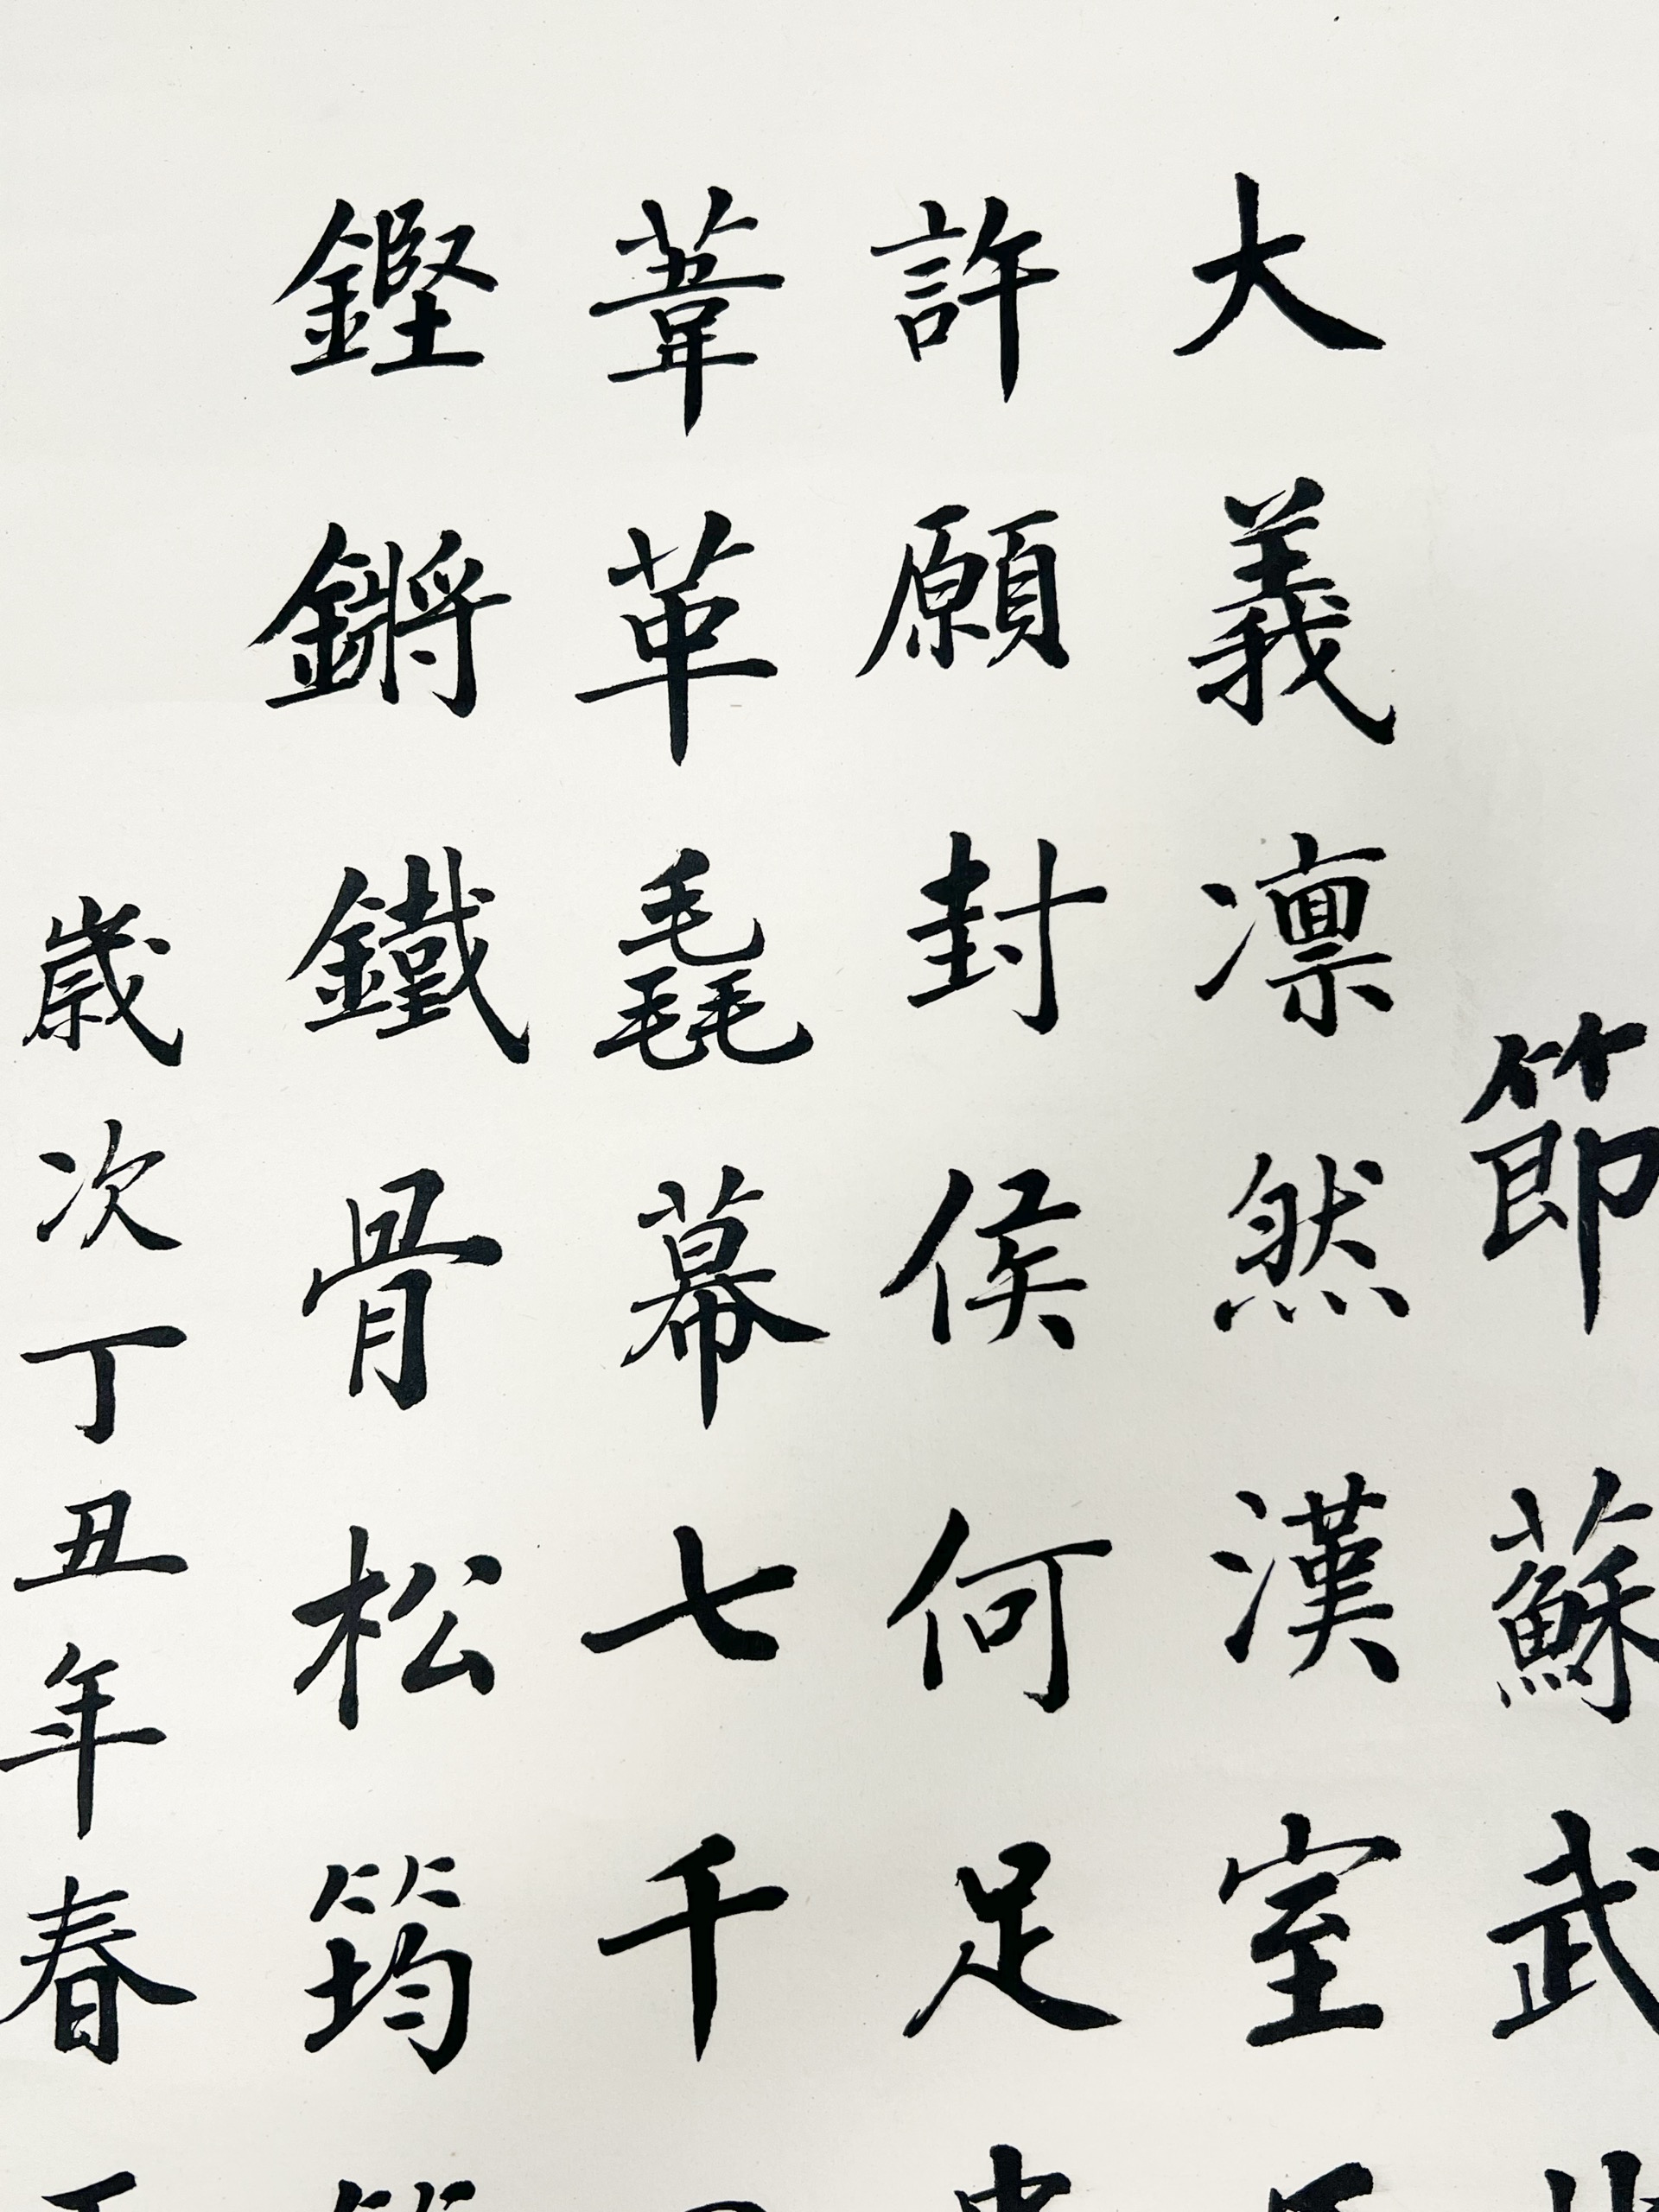 節蘇武
大義凛然漢室
許願封侯何足
葦革毳幕七千
鏗鏘鐵骨松筠
歲次丁丑年春